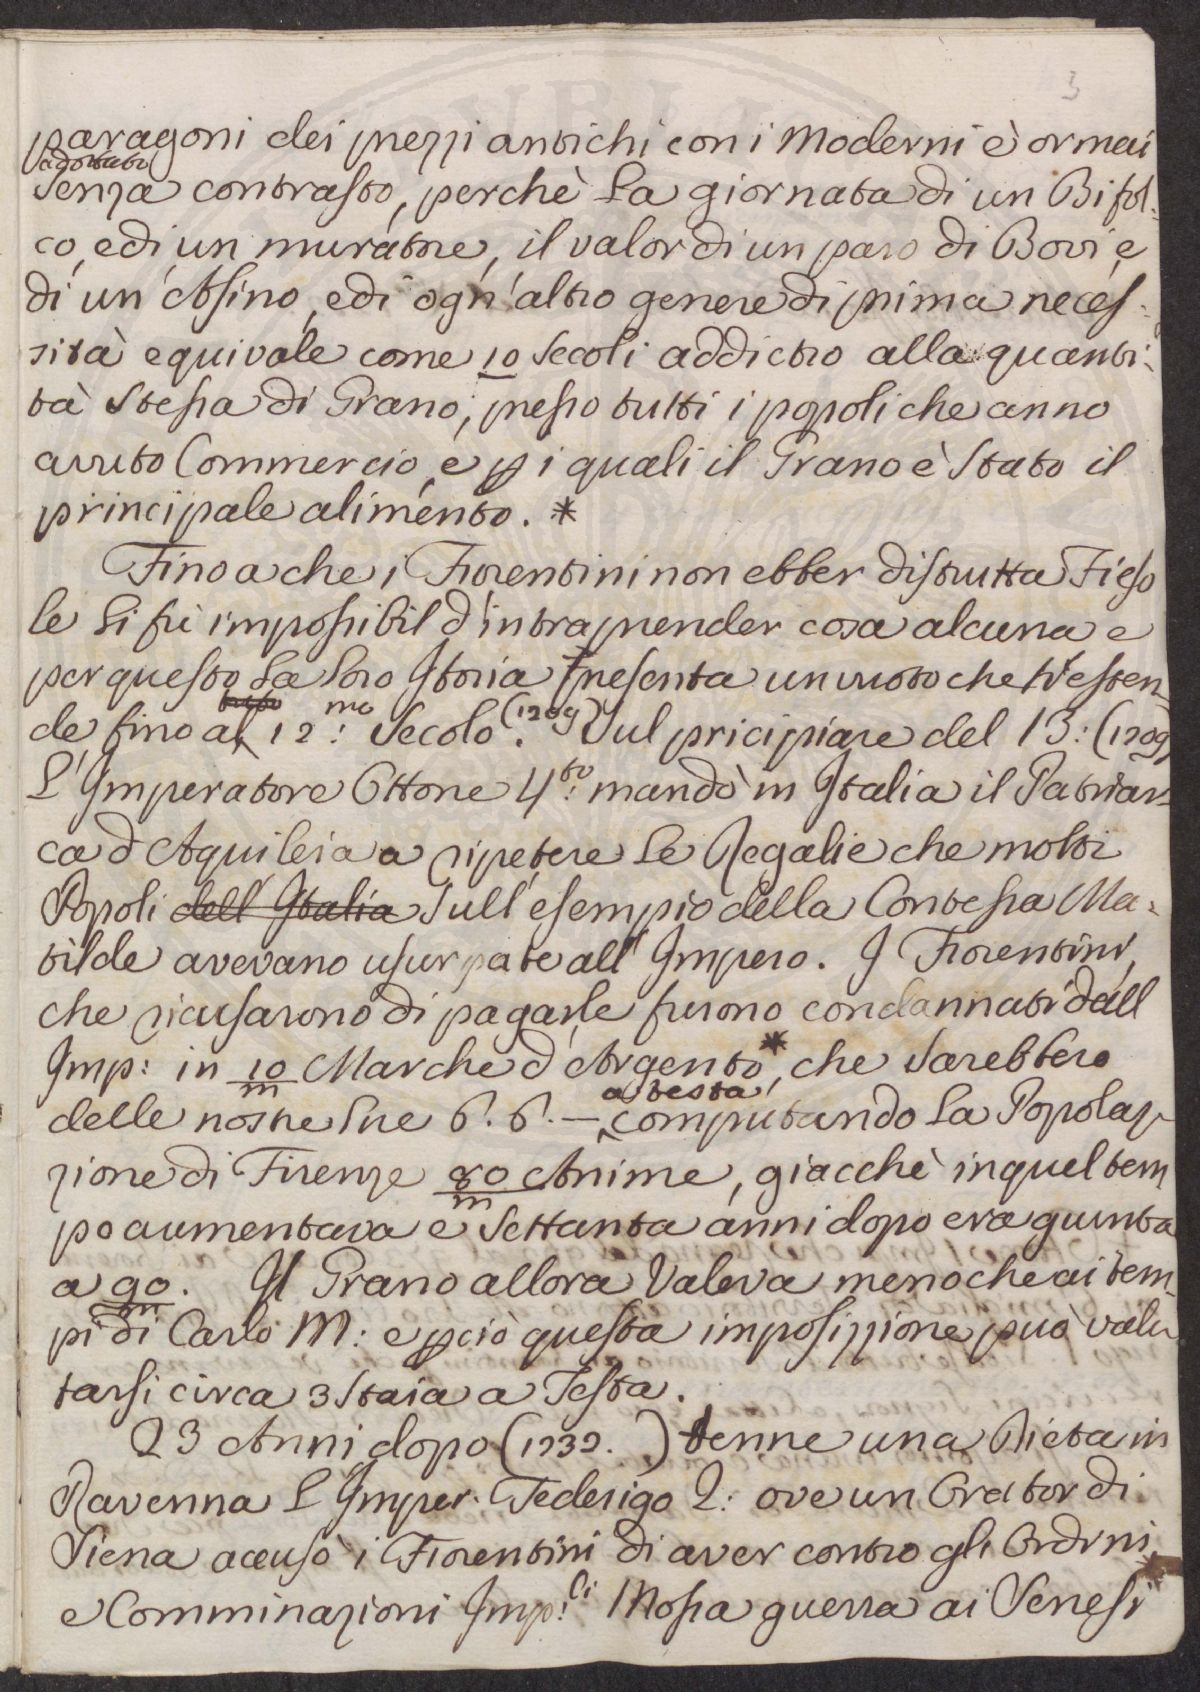 3
paragoni dei prezzi antichi con i Moderni è ormai
adottato
senza contrasto, perchè la giornata di un Bifol=
co, e di un muratore, il valor di un paro di Bovi e
di un Asino, e di ogn'altro genere di prima neces=
sità equivale come 10 Secoli addietro alla quanti=
tà stessa di Grano, presso tutti i popoli che anno
avuto Commercio, e p i quali il Grano è Stato il
principale alimento. *
Fino a che i Fiorentini non ebber distrutta Fieso
le li fù impossibil d'intraprender cosa alcuna e
per questo la loro Istoria presenta un vuoto che s'esten
de fino al 12:mo Secolo. (1209) Sul pricipiare del 13: (1209)
L'Imperatore Ottone 4:to mandò in Italia il Patriar=
ca d Aquileia a ripetere le Regalie che molti
Popoli dell'Italia sull'esempio della Contessa Ma=
tilde avevano usurpate all'Impero. I Fiorentini,
che ricusarono di pagarle furono condannati dall
Imp: in 10/m Marche d Argento*, che sarebbero
delle nostre lire 6. 6. — a testa, computando la Popolaz
zione di Firenze 80/m Anime, giacchè in quel tem
po aumentava e Settanta anni dopo era giunta
a 90/m. Il Grano allora Valeva meno che ai tem=
pi di Carlo M: e pciò questa imposizzione può valu
tarsi circa 3 Staia a Testa.
23 Anni dopo (1232.) tenne una Dieta in
Ravenna L Imper. Federigo 2: ove un Orator di
Siena accusò i Fiorentini di aver contro gli Ordini,
e Comminazioni Imp:li Mossa guerra ai Senesi *